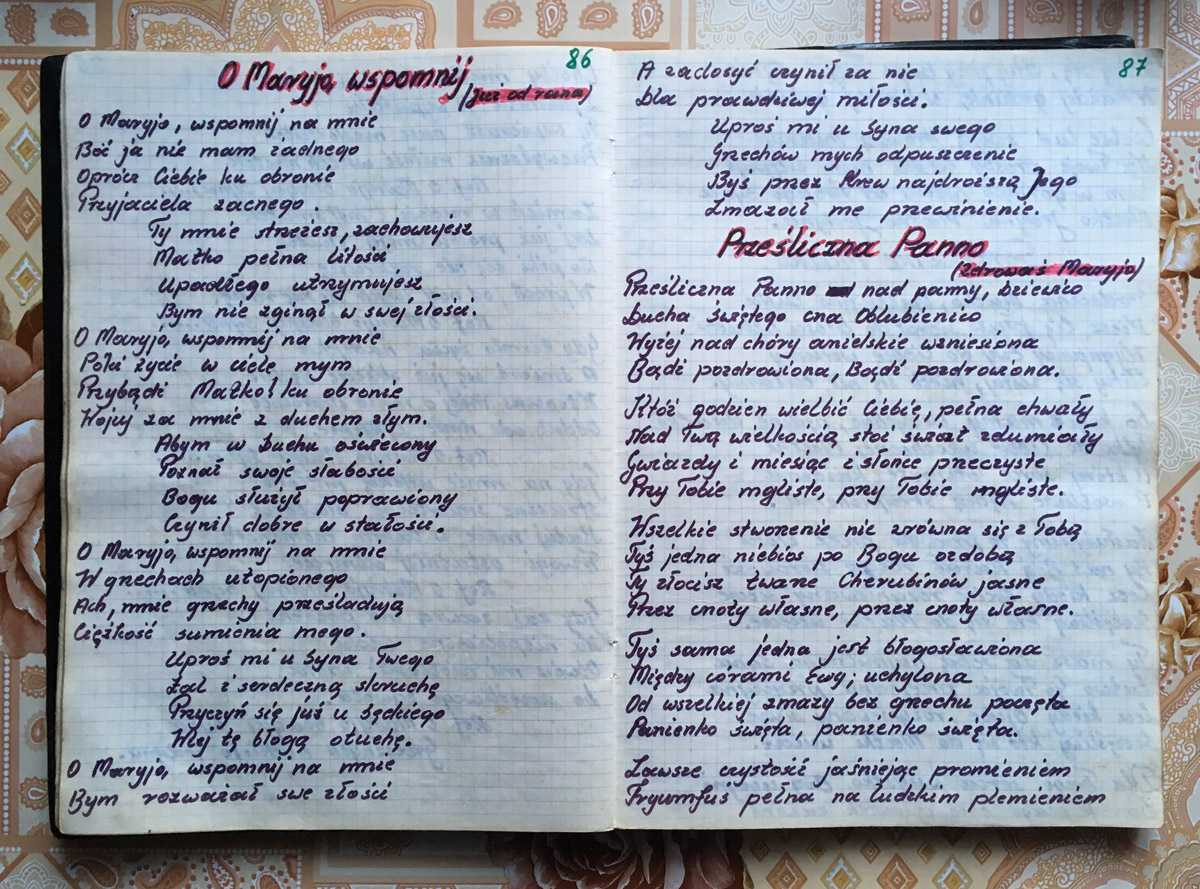 86
O Maryjo, wspomnij
(Już od rana)
O Maryjo, wspomnij na mnie
Boć ja nie mam żadnego
Oprócz Ciebie ku obronie
Przyjaciela zacnego.
Ty mnie strzeżesz, zachowujesz
Matko pełna litości
Upadłego utrzymujesz
Bym nie zginął w swej złości.
O Maryjo, wspomnij na mnie
Póki życie w ciele mym
Przybądź Matko! ku obronie
Wojuj za mnie z duchem złym.
Abym w Duchu oświecony
Poznał swoje słabości
Bogu służył poprawiony
Czynił dobre w stałości.
O Maryjo, wspomnij na mnie
W grzechach utopionego
Ach, mnie grzechy prześladują
Ciężkość sumienia mego.
Uproś mi u Syna Twego
Żal i serdeczną skruchę
Przyczyń się już u Sędziego
Wlej tę błogą otuchę.
O Maryjo, wspomnij na mnie
Bym rozważał swe złości
87
A zadosyć czynił za nie
Dla prawdziwej miłości.
Uproś mi u Syna swego
Grzechów mych odpuszczenie
Byś przez Krew najdroższą Jego
Zmazał me przewinienie.
Prześliczna Panno
(Zdrowaś Maryjo)
Prześliczna Panno nad panny, Dziewico
Ducha świętego cna Oblubienico
Wyżej nad chóry anielskie wzniesiona
Bądź pozdrowiona, Bądź pozdrowiona.
Któż godzien wielbić Ciebie, pełna chwały
Nad Twą wielkością stoi świat zdumiały
Gwiazdy i miesiąc i słońce przeczyste
Przy Tobie mgliste, przy Tobie mgliste.
Wszelkie stworzenie nie zrówna się z Tobą
Tyś jedna niebios po Bogu ozdobą
Ty złocisz twarze Cherubinów jasne
Przez cnoty własne, przez cnoty własne.
Tyś sama jedna jest błogosławiona
Między córami Ewy; uchylona
Od wszelkiej zmazy bez grzechu poczęta
Panienko święta, panienko święta.
Zawsze czystość jaśniejąc promieniem
Tryumfuś pełna na ludzkim plemieniem